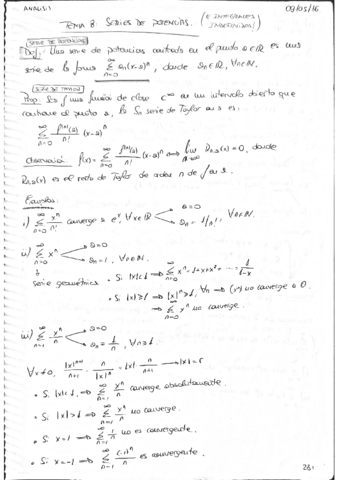 ANALISIS 09/05/16
TEMA 8: SERIES DE POTENCIAS. (E INTEGRALES INDEFINIDAS)
SERIE DE POTENCIAS
Def: Una serie de potencias centrada en el punto a∈ℝ es una
serie de la forma ∑_{n=0}^{∞} a_n(x-a)^n, donde a_n∈ℝ, ∀n∈ℕ.
SERIE DE TAYLOR
Prop. Sea f una función de clase C^∞ en un intervalo abierto que
contiene al punto a, la serie de Taylor en a es:
∑_{n=0}^{∞} f^{(n)}(a)/n! (x-a)^n
Observación: f(x)=∑_{n=0}^{∞} f^{(n)}(a)/n! (x-a)^n ⟺ lim_{n→∞} R_{n,a}(x)=0, donde
R_{n,a}(x) es el resto de Taylor de orden n de f en a.
Ejemplos:
i) ∑_{n=0}^{∞} x^n/n! converge a e^x, ∀x∈ℝ a=0
a_n=1/n!, ∀n∈ℕ.
ii) ∑_{n=0}^{∞} x^n a=0
a_n=1, ∀n∈ℕ.
serie geométrica. • Si |x|<1 ⟹ ∑_{n=0}^{∞} x^n=1+x+x²+...=1/(1-x)
• Si |x|≥1 ⟹ |x|^n≥1, ∀n ⟹ (x^n) no converge a 0.
⟹ ∑_{n=0}^{∞} x^n no converge.
iii) ∑_{n=1}^{∞} x^n/n a=0
a_n=1/n, ∀n≥1.
∀x≠0, |x|^{n+1}/(n+1) · n/|x|^n = |x| · n/(n+1) → |x|=r
• Si |x|<1 ⟹ ∑_{n=1}^{∞} x^n/n converge absolutamente.
• Si |x|>1 ⟹ ∑_{n=1}^{∞} x^n/n no converge.
• Si x=1 ⟹ ∑_{n=1}^{∞} 1/n no es convergente.
• Si x=-1 ⟹ ∑_{n=1}^{∞} (-1)^n/n es convergente.
261